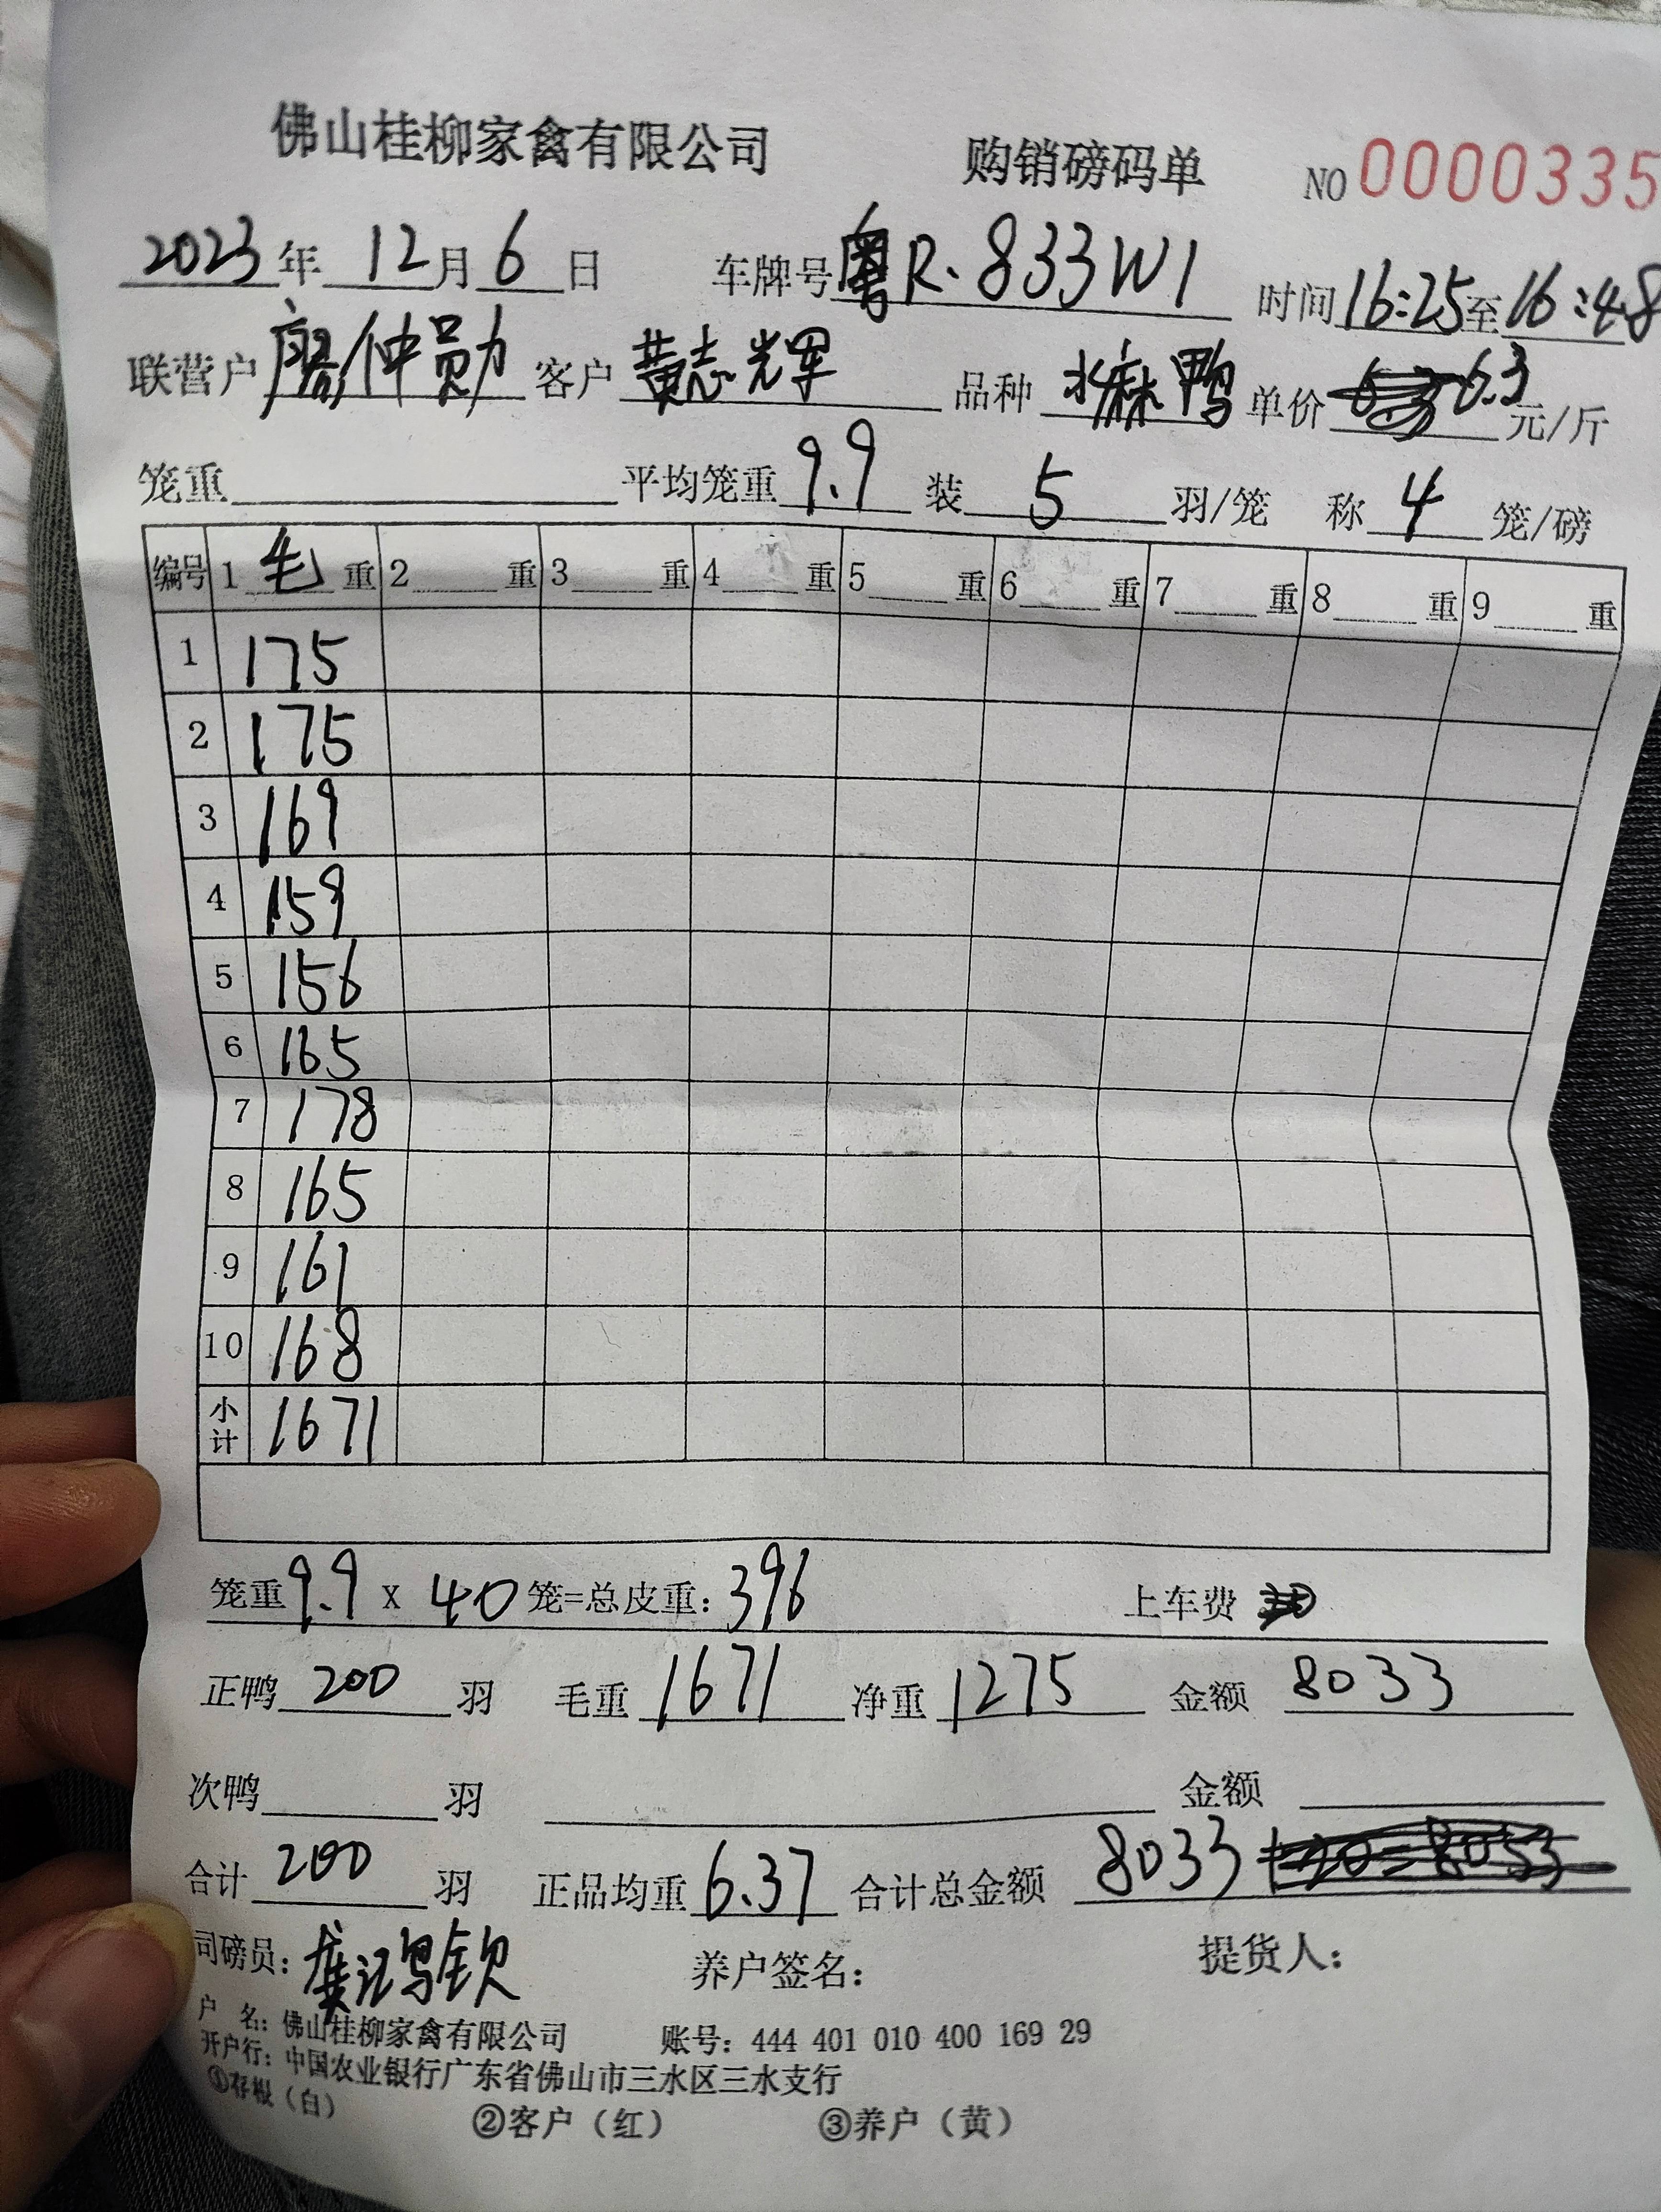 佛山桂柳家禽有限公司 购销磅码单 NO 0000335
2023年12月6日 车牌号粤R·833W1 时间16:25至16:48
联营户廖仲勋 客户黄志辉 品种水麻鸭 单价6.3元/斤
笼重 平均笼重9.9 装5羽/笼 称4笼/磅
编号 1毛重 2重 3重 4重 5重 6重 7重 8重 9重
1 175
2 175
3 169
4 159
5 156
6 165
7 178
8 165
9 161
10 168
小计 1671
笼重9.9x40笼=总皮重:396 上车费
正鸭200羽 毛重1671 净重1275 金额8033
次鸭 羽 金额
合计200羽 正品均重6.37 合计总金额8033
司磅员: 养户签名: 提货人:
户 名:佛山桂柳家禽有限公司 账号:444 401 010 400 169 29
开户行:中国农业银行广东省佛山市三水区三水支行
①存根(白) ②客户(红) ③养户(黄)